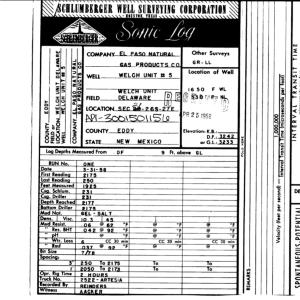 SCHLUMBERGER WELL SURVEYING CORPORATION
HOUSTON, TEXAS
Sonic Log
SCHLUMBERGER
COUNTY EDDY
FIELD or
LOCATION WELCH UNIT DELAWARE
WELL WELCH UNIT # 5
COMPANY EL PASO NATURAL
GAS PRODUCTS CO.
COMPANY EL PASO NATURAL
GAS PRODUCTS CO.
WELL WELCH UNIT # 5
WELCH UNIT
FIELD DELAWARE
LOCATION SEC
26S-27E
API-3001501156
COUNTY EDDY
STATE NEW MEXICO
Other Surveys
GR-LL
Location of Well
1650 F WL
Elevation: K.B.
D.F. 3242
or G.L. 3233
Log Depths Measured From DF 9 Ft. above GL
RUN No. ONE
Date 3-31-58
First Reading 2175
Last Reading 250
Feet Measured 1925
Csg. Schlum. 231
Csg. Driller 231
Depth Reached 2177
Bottom Driller 2175
Mud Nat. GEL-SALT
Dens. | Visc. 10.3 45
Mud Resist. .06 @ 92 °F @ °F @ °F
" Res. BHT .042 @ 92 °F @ °F @ °F
" pH @ °F @ °F @ °F
" Wtr. Loss 6 CC 30 min CC 30 min CC 30 min
" Rmf .037 @ 92 °F @ °F @ °F
Bit Size 7 7/8
Spacings:
3' 250 To 2175 To To
1' 2050 To 2173 To To
Opr. Rig Time 2 HOURS
Truck No. 2522-ARTESIA
Recorded By REINDERS
Witness AACKER
REMARKS
INTERVAL TRANSIT TIME
1,000,000
Velocity (feet per second) = Interval Transit Time (microseconds per foot)
SPONTANEOUS-POTENTIAL